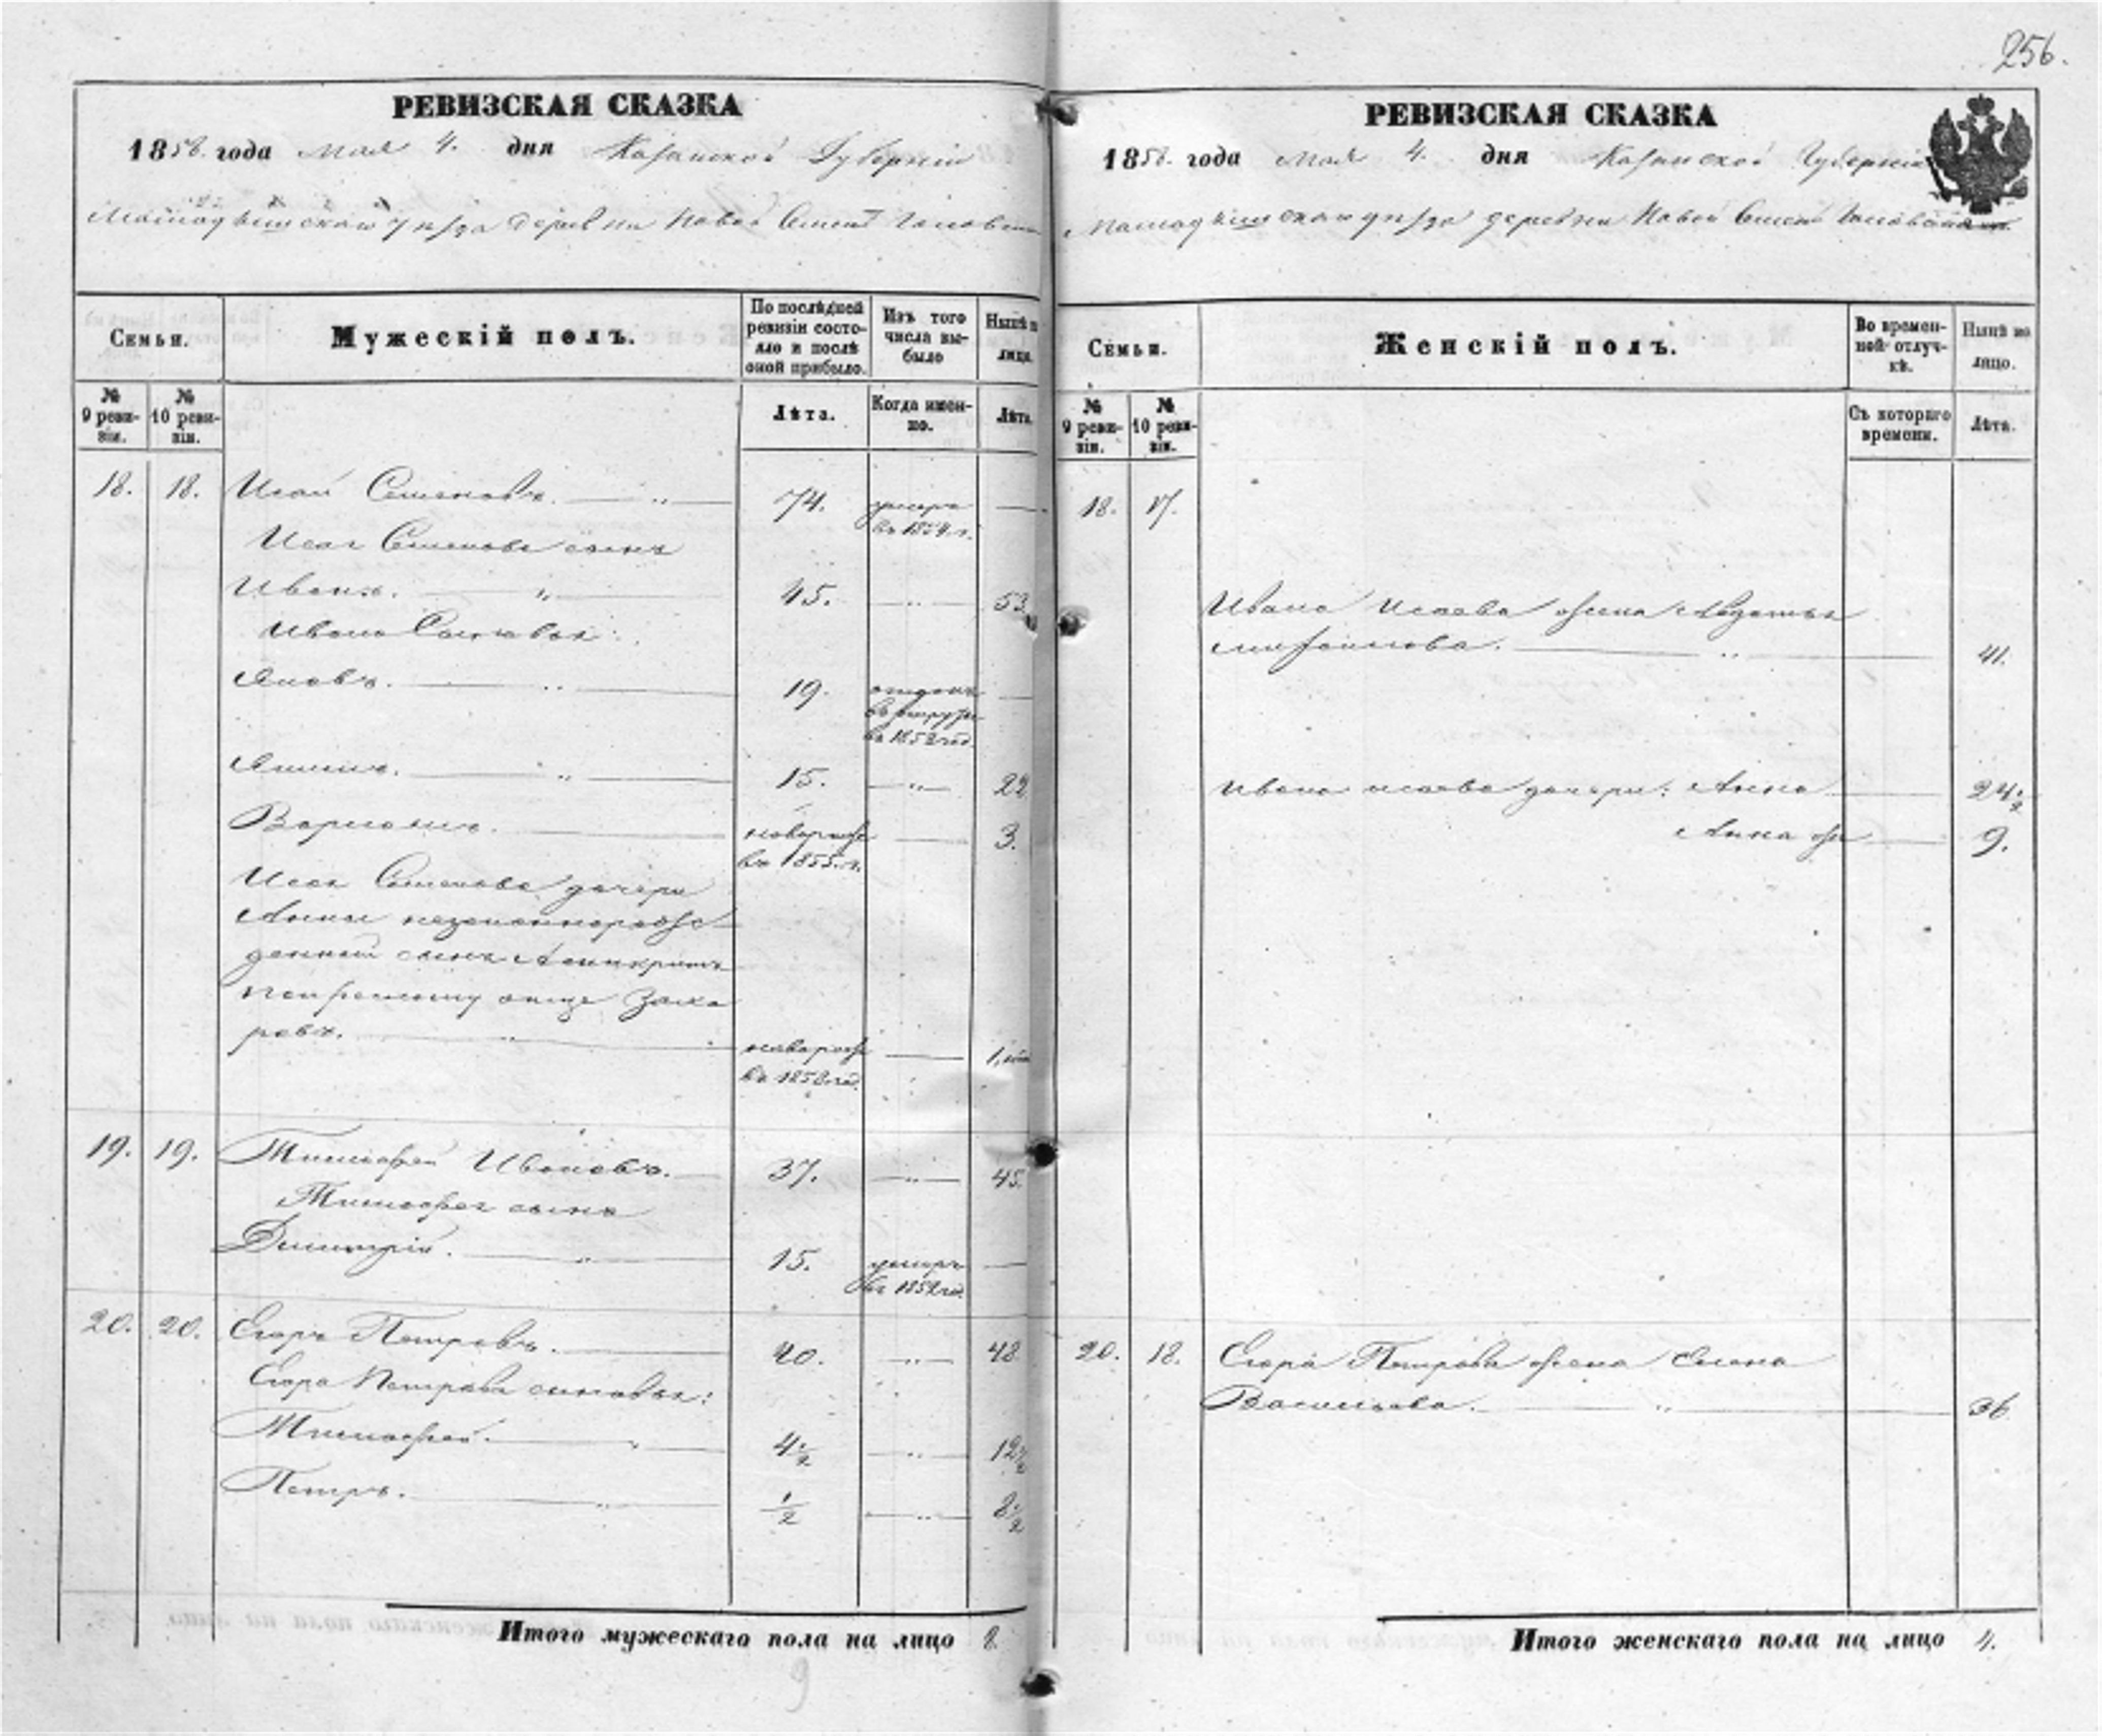 256.
РЕВИЗСКАЯ СКАЗКА
1858. года Мая 4. дня Казанской Губернiи
уѣзда деревни Новой
Семьи.
Мужескiй полъ.
По послѣдней ревизiи состояло и послѣ оной прибыло.
Изъ того числа выбыло
Нынѣ
лицо.
№ 9 ревизiи.
№ 10 ревизiи.
Лѣта.
Когда именно.
Лѣта.
18. 18. Исай Семеновъ. 74. умеръ въ 1854 г.
Исая Семенова сынъ
Иванъ. 45. 53
Ивана Сыновья:
Яковъ. 19. отданъ въ рекруты въ год.
15. 22
3.
въ 1855. г.
Исая Семенова дочери
Анны незаконнорож-
денный сынъ
отцу Заха
ровъ.
год.
19. 19. Тимофей Ивановъ. 37. 45.
Тимофея сынъ
Димитрiй. 15. умеръ год.
20. 20. Егоръ Петровъ. 40. 48
Егора Петрова сыновья:
Тимофей. 4 1/2 12 1/2
Петръ. 1/2 8 1/2
Итого мужескаго пола на лицо 8.
9
РЕВИЗСКАЯ СКАЗКА
1858. года Мая 4. дня Казанской Губернiи
уѣзда деревни Новой
Семьи.
Женскiй полъ.
Во временной отлучкѣ.
Нынѣ на лицо.
№ 9 ревизiи.
№ 10 ревизiи.
Съ котораго времени.
Лѣта.
18. 17.
Ивана Исаева жена
41.
Ивана Исаева дочери: Анна 24 1/2
Анна же 9.
20. 18. Егора Петрова жена Елена
Васильева. 36
Итого женскаго пола на лицо 4.